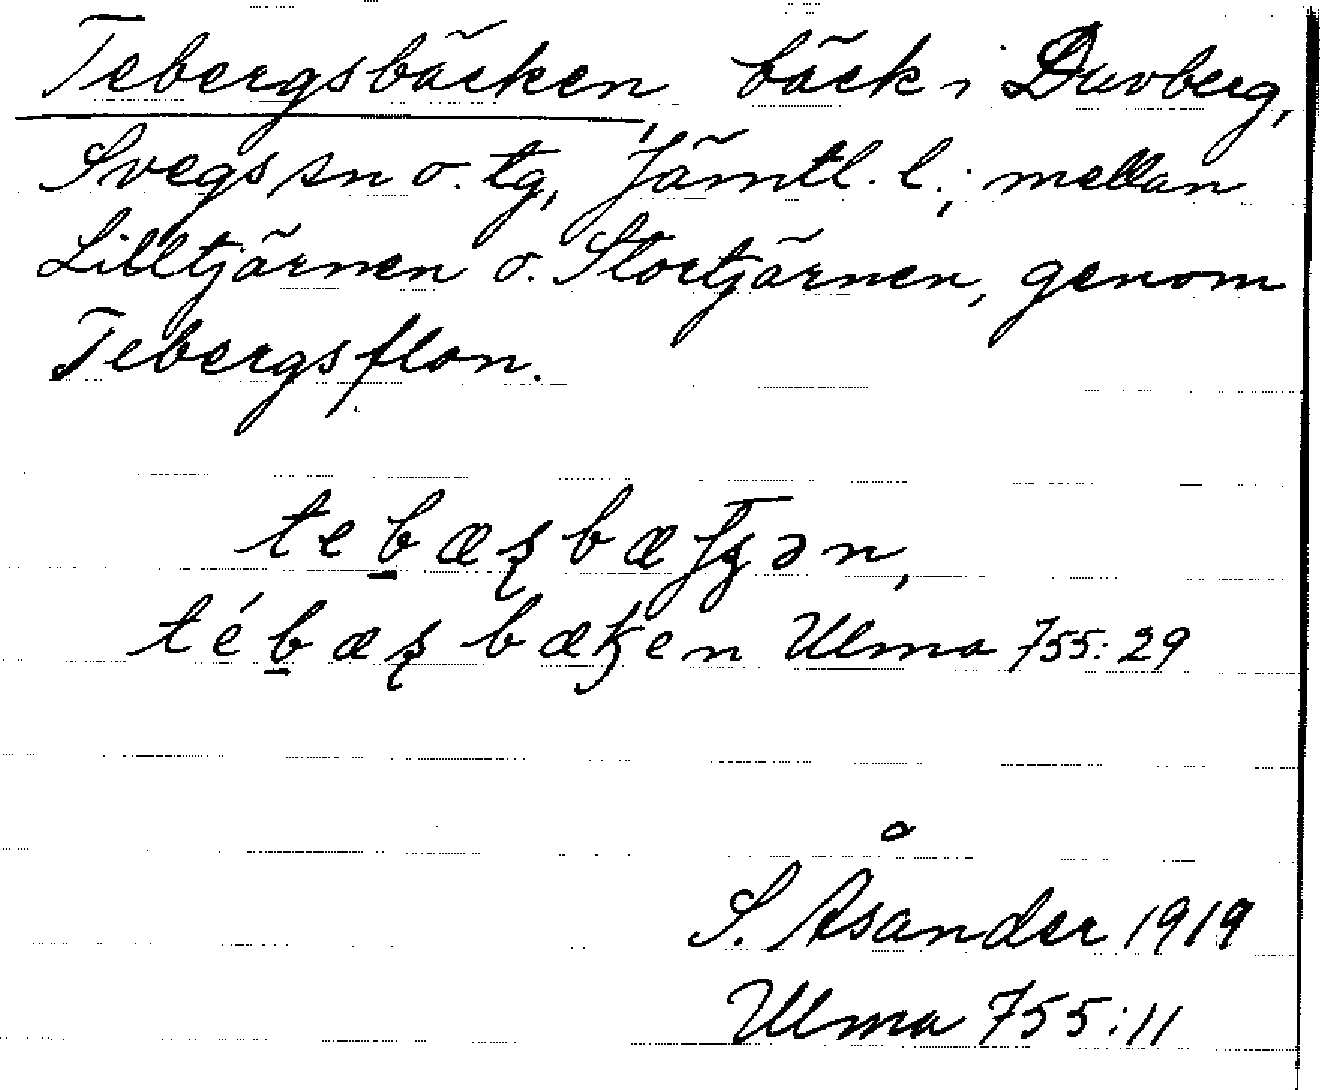 Tebergsbäcken, bäck i Duvberg,
Svegs sn o. tg, Jämtl. l.; mellan
Lilltjärnen o. Stortjärnen, genom
Tebergsflon.
Ulma 755:29
S. Åsander 1919
Ulma 755:11